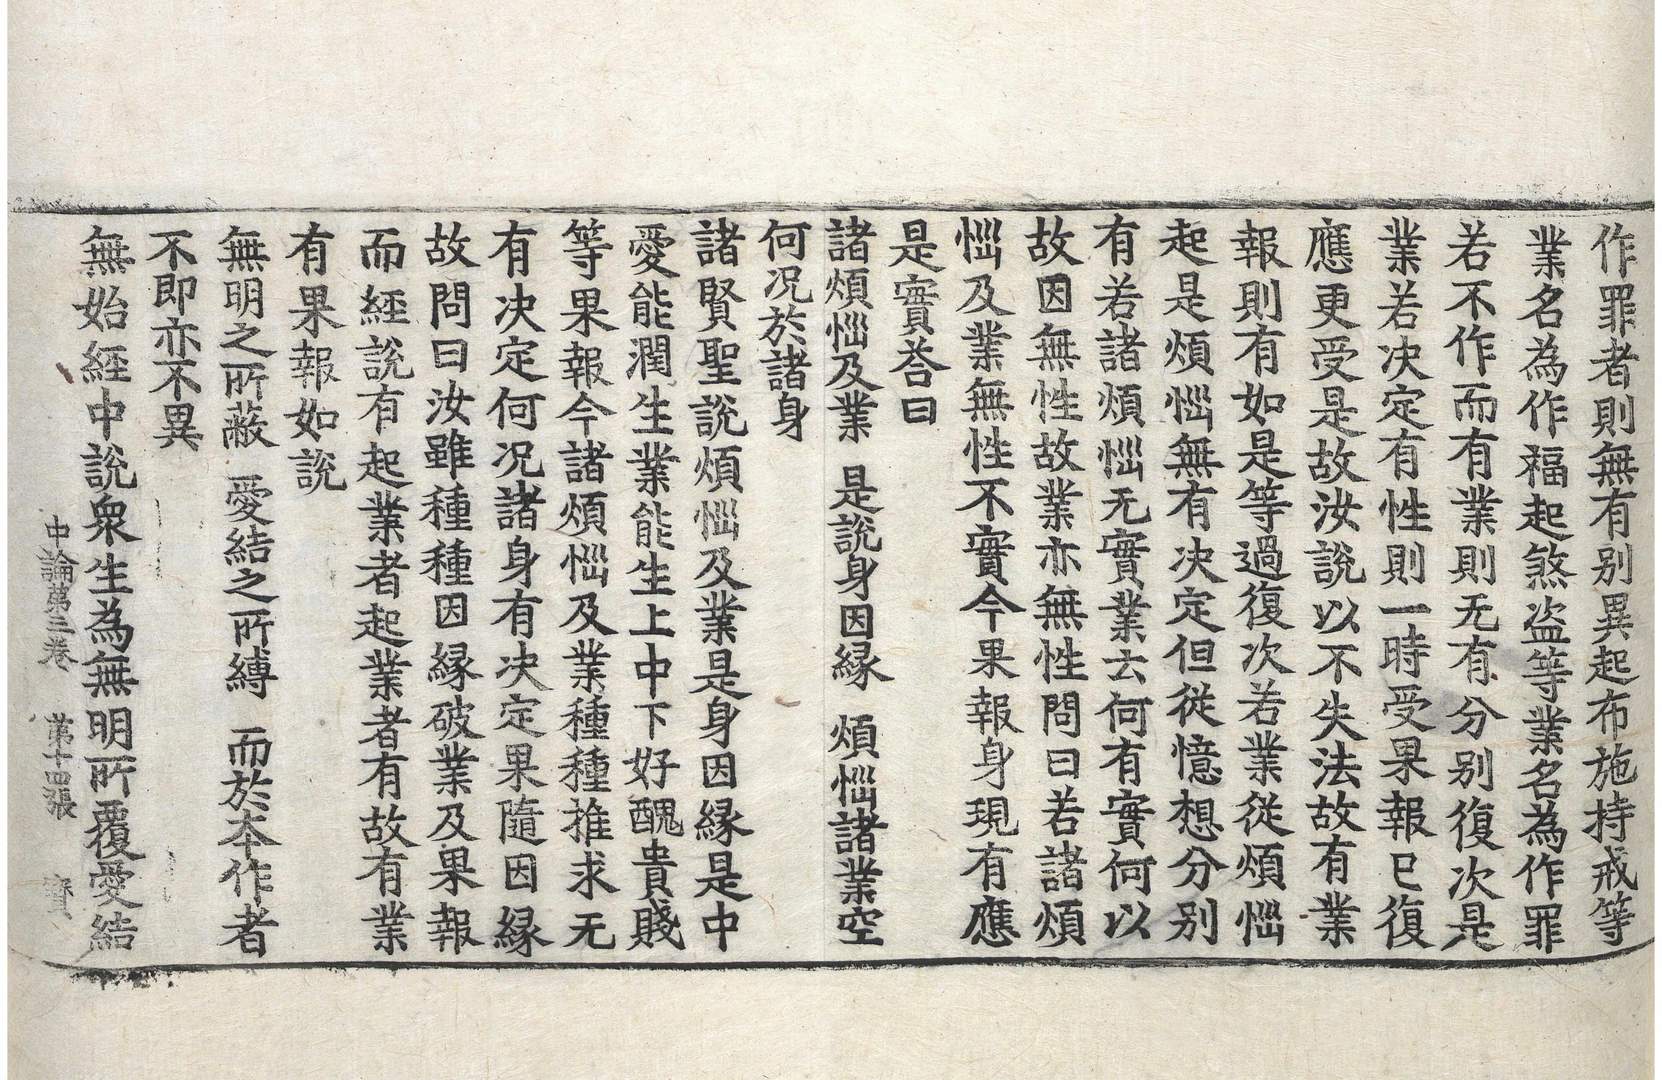 作罪者則無有別異起布施持戒等
業名為作福起煞盗等業名為作罪
若不作而有業則无有分別復次是
業若决定有性則一時受果報已復
應更受是故汝說以不失法故有業
報則有如是等過復次若業從煩惱
起是煩惱無有决定但從憶想分別
有若諸煩惱无實業云何有實何以
故因無性故業亦無性問曰若諸煩
惱及業無性不實今果報身現有應
是實荅曰
諸煩惱及業 是說身因縁 煩惱諸業空
何况於諸身
諸賢聖說煩惱及業是身因縁是中
愛能潤生業能生上中下好醜貴賤
等果報今諸煩惱及業種種推求无
有决定何况諸身有决定果隨因縁
故問曰汝雖種種因縁破業及果報
而經說有起業者起業者有故有業
有果報如說
無明之所蔽 愛結之所縛 而於本作者
不即亦不異
無始經中說衆生為無明所覆愛結
中論第三卷 第十四張 賓